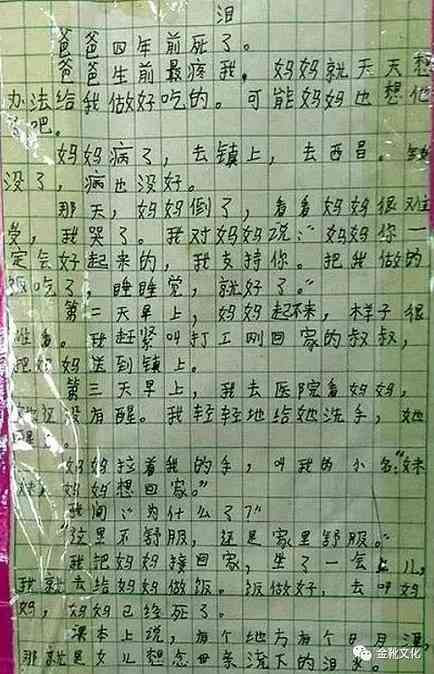 泪
爸爸四年前死了。
爸爸生前最疼我，妈妈就天天想
办法给我做好吃的。可能妈妈也想他
了吧。
妈妈病了，去镇上，去西昌。钱
没了，病也没好。
那天，妈妈倒了，看看妈妈很难
受，我哭了。我对妈妈说：“妈妈你一
定会好起来的，我支持你。把我做的
饭吃了，睡睡觉，就好了。”
第二天早上，妈妈起不来，样子很
难看。我赶紧叫打工刚回家的叔叔，
把妈妈送到镇上。
第三天早上，我去医院看妈妈，
她还没有醒。我轻轻地给她洗手，她
醒了。
妈妈拉着我的手，叫我的小名：“妹
妹，妈妈想回家。”
我问：“为什么了？”
“这里不舒服，还是家里舒服。”
我把妈妈接回家，坐了一会儿，
我就去给妈妈做饭。饭做好，去叫妈
妈，妈妈已经死了。
课本上说，有个地方有个日月潭，
那就是女儿想念母亲流下的泪水。
金靴文化